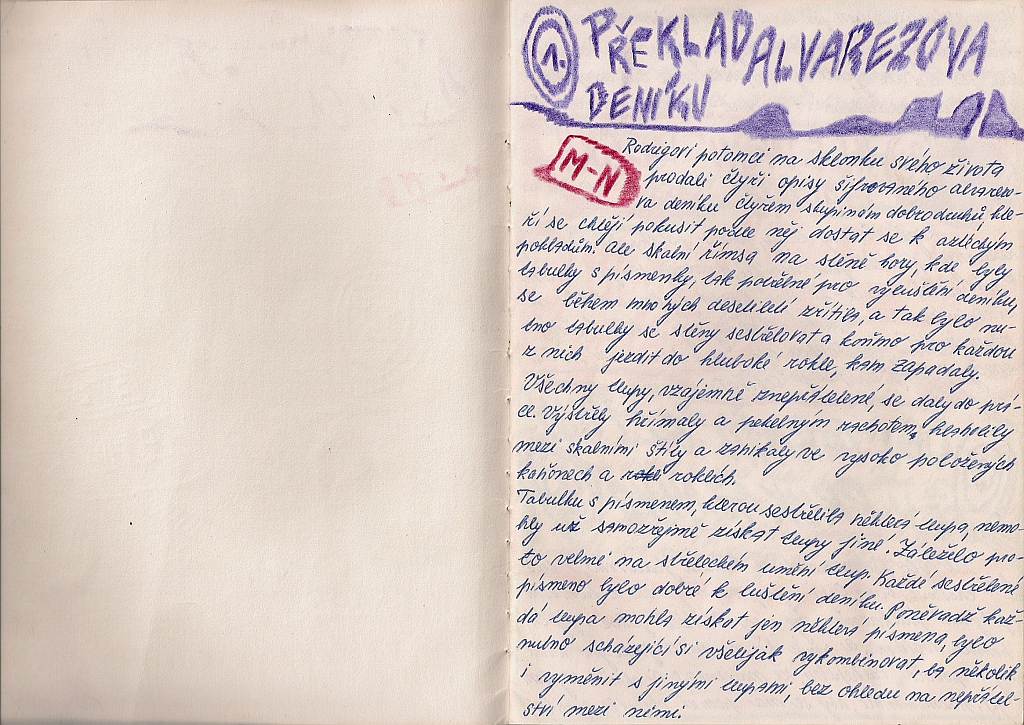 1. PŘEKLAD ALVAREZOVA
DENÍKU
M-N
Rodrigovi potomci na sklonku svého života
prodali čtyři opisy šifrovaného alvarezo-
va deníku čtyřem skupinám dobrodruhů, kte-
ří se chtějí pokusit podle něj dostat se k aztéckým
pokladům. Ale skalní římsa na stěně hory, kde byly
tabulky s písmenky, tak potřebné pro vyluštění deníku,
se během mnohých desetiletí zřítila, a tak bylo nu-
tno tabulky se stěny sestřelovat a koňmo pro každou
z nich jezdit do hluboké rokle, kam zapadaly.
Všechny tlupy, vzájemně znepřátelené, se daly do prá-
ce. Výstřely hřímaly a pekelným rachotem, hlaholily
mezi skalními štíty a zanikaly ve vysoko položených
kaňonech a roklích.
Tabulku s písmenem, kterou sestřelila některá tlupa, nemo-
hly už samozřejmě získat tlupy jiné. Záleželo pro-
to velmě na střeleckém umění tlup. Každé sestřelené
písmeno bylo dobré k luštění deníku. Poněvadž kaž-
dá tlupa mohla získat jen některá písmena, bylo
nutno scházející si všelijak vykombinovat, ba několik
i vyměnit s jinými tlupami, bez ohledu na nepřátel-
ství mezi nimi.